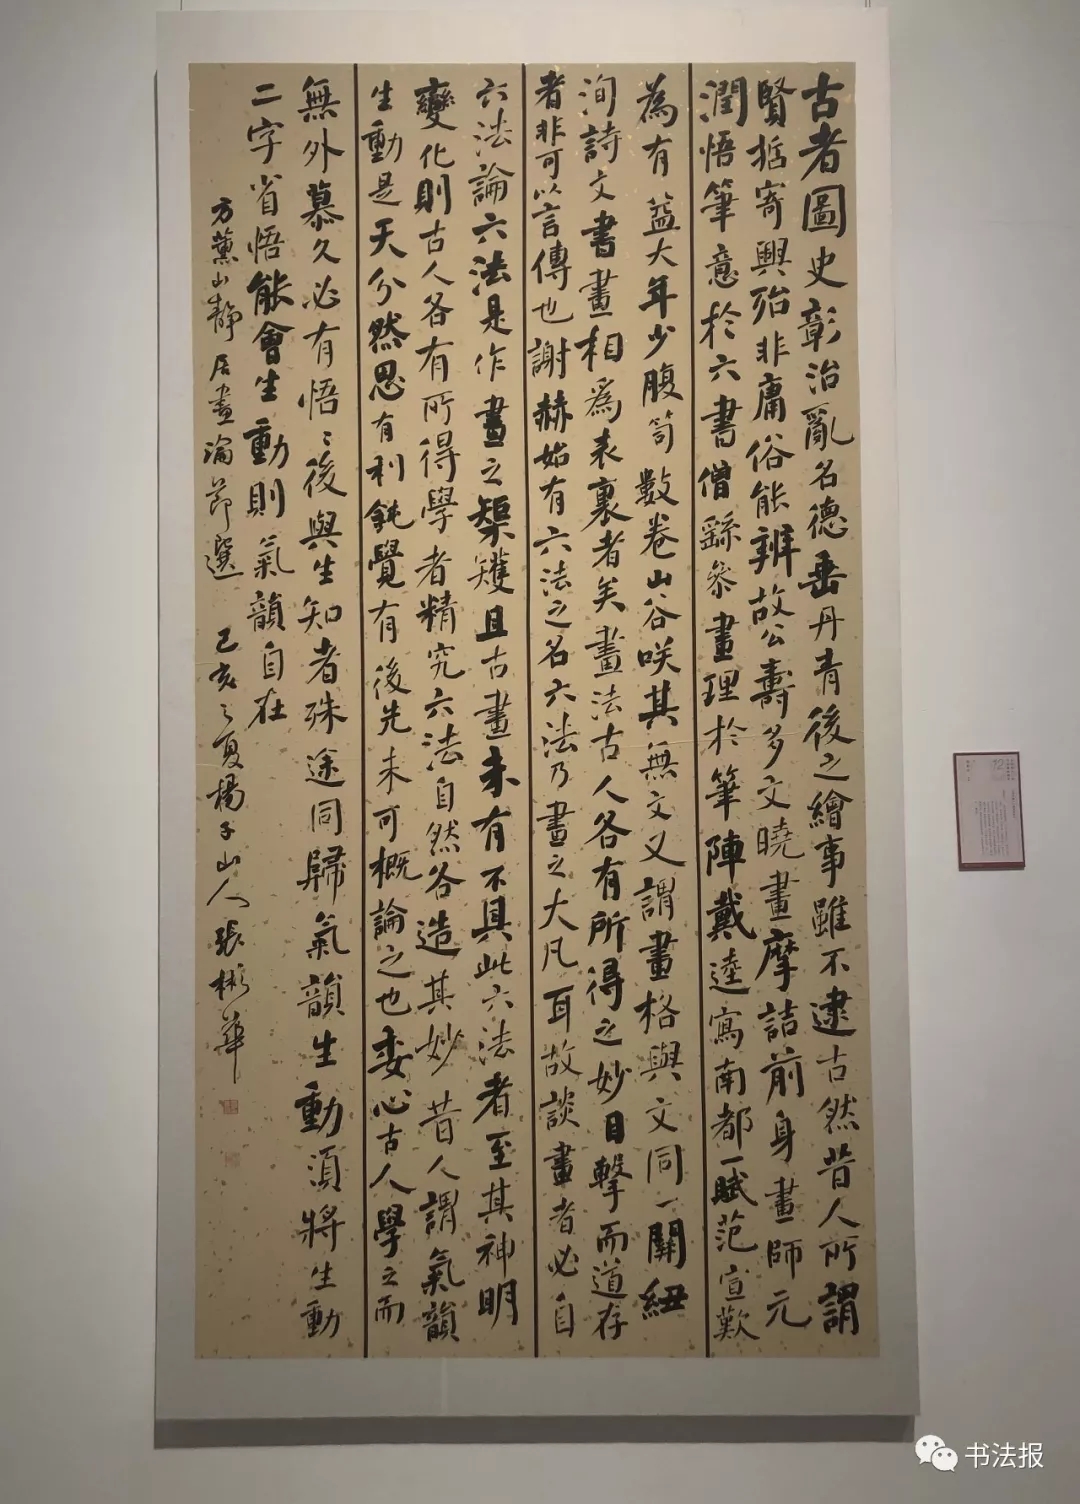 古者圖史彰治亂名德垂丹青後之繪事雖不逮古然昔人所謂
賢哲寄興殆非庸俗能辨故公壽多文曉畫摩詰前身畫師元
潤悟筆意於六書僧繇參畫理於筆陣戴逵寫南都一賦范宣歎
為有益大年少腹笥數卷山谷咲其無文又謂畫格與文同一關紐
洵詩文書畫相為表裏者矣畫法古人各有所得之妙目擊而道存
者非可以言傳也謝赫始有六法之名六法乃畫之大凡耳故談畫者必自
六法論六法是作畫之榘矱且古畫未有不具此六法者至其神明
變化則古人各有所得學者精究六法自然各造其妙昔人謂氣韻
生動是天分然思有利鈍覺有後先未可概論之也委心古人學之而
無外慕久必有悟〻後與生知者殊途同歸氣韻生動須將生動
二字省悟能會生動則氣韻自在
方薰山靜居畫論節選 己亥之夏楊子山人張彬華
12
书法报